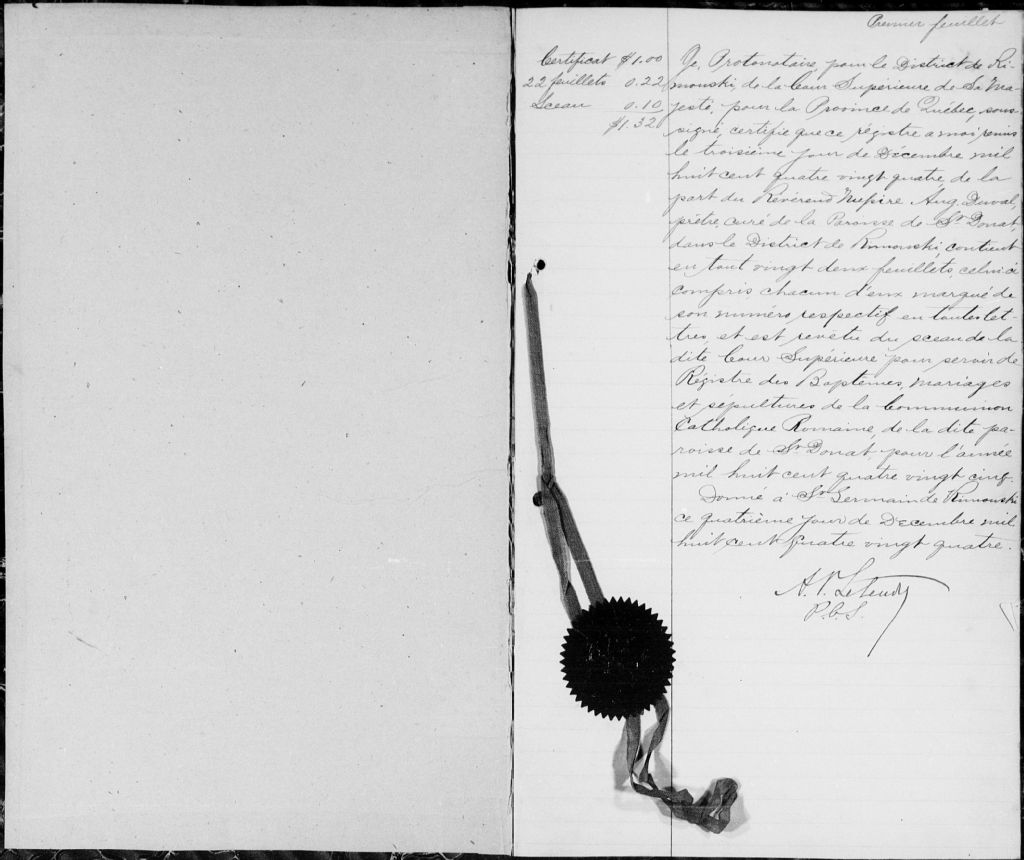 Premier feuillet
Certificat $1.00
22 feuillets 0.22
Sceau 0.10
$1.32
Je, Protonotaire, pour le District de Ri-
mouski, de la Cour Supérieure de Sa Ma-
jesté, pour la Province de Québec, sous-
signé, certifie que ce régistre a moi remis
le troisième jour de Décembre mil
huit cent quatre vingt quatre, de la
part du Révérend Messire Aug. Duval,
prêtre, curé de la Paroisse de St Donat,
dans le District de Rimouski, contient
en tout vingt deux feuillets celui ci
compris chacun d'eux marqué de
son numéro respectif en toutes let-
tres, et est revêtu du sceau de la
dite Cour Supérieure pour servir de
Régistre des Baptêmes, mariages
et sépultures de la Communion
Catholique Romaine, de la dite pa-
roisse de St Donat, pour l'année
mil huit cent quatre vingt cinq.
Donné à St Germain de Rimouski
ce quatrième jour de Décembre mil
huit cent quatre vingt quatre.
A. P. Letendre
P.C.S.